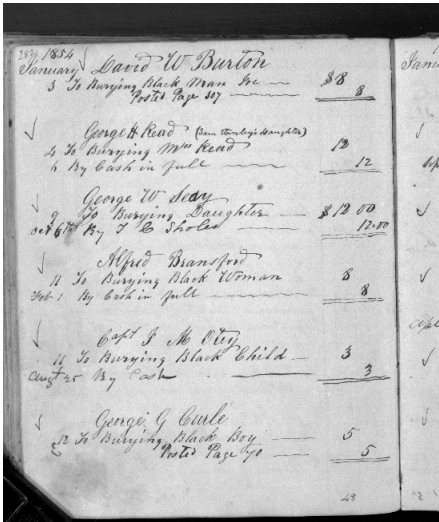 1854
January David W Burton
3 To Burying Black Man $8
Posted Page 307 8
George H Read (Sam Stanley's daughter)
4 To Burying Mrs Read 12
6 By Cash in full 12
George W Seay
9 To Burying Daughter $12 00
Oct 6th By T C Sholes 12.00
Alfred Bransford
11 To Burying Black Woman 8
Feb 1 By Cash in full 8
Capt J M Otey
11 To Burying Black Child 3
Augt 25 By Cash 3
George G Curle
12 To Burying Black Boy 5
Posted Page 70 5